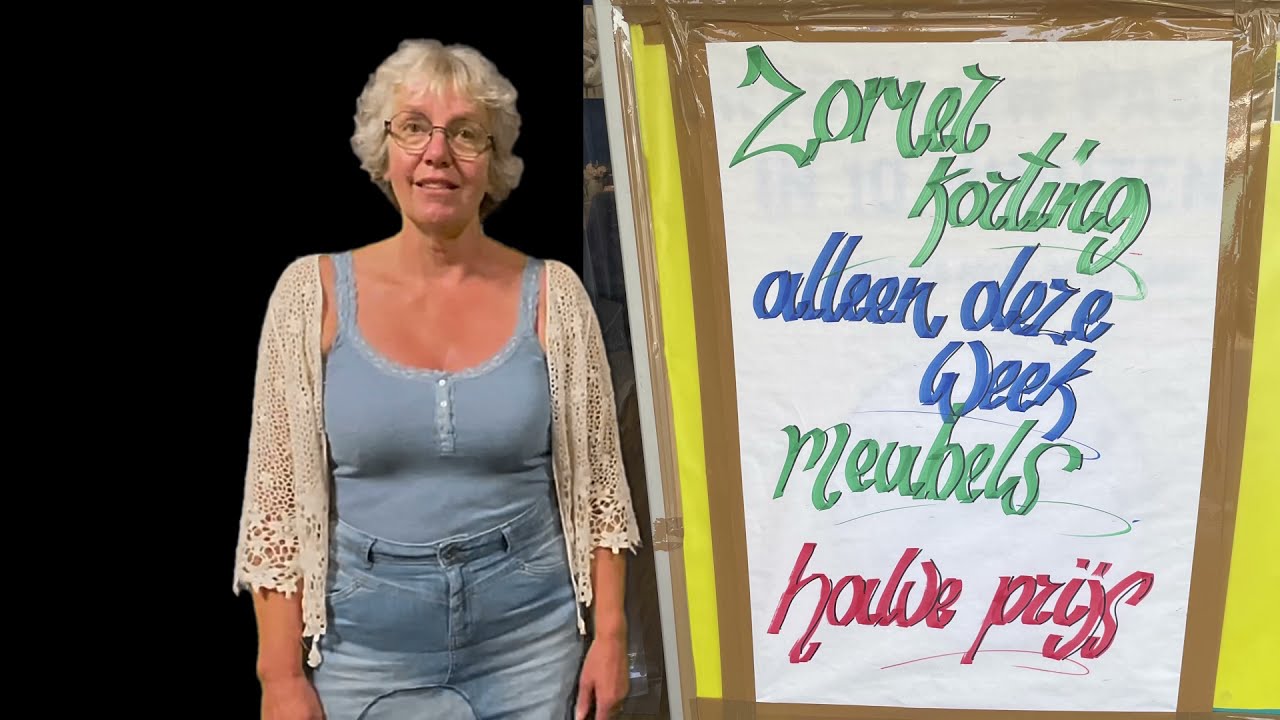 Zomer
korting
alleen deze
week
meubels
halve prijs